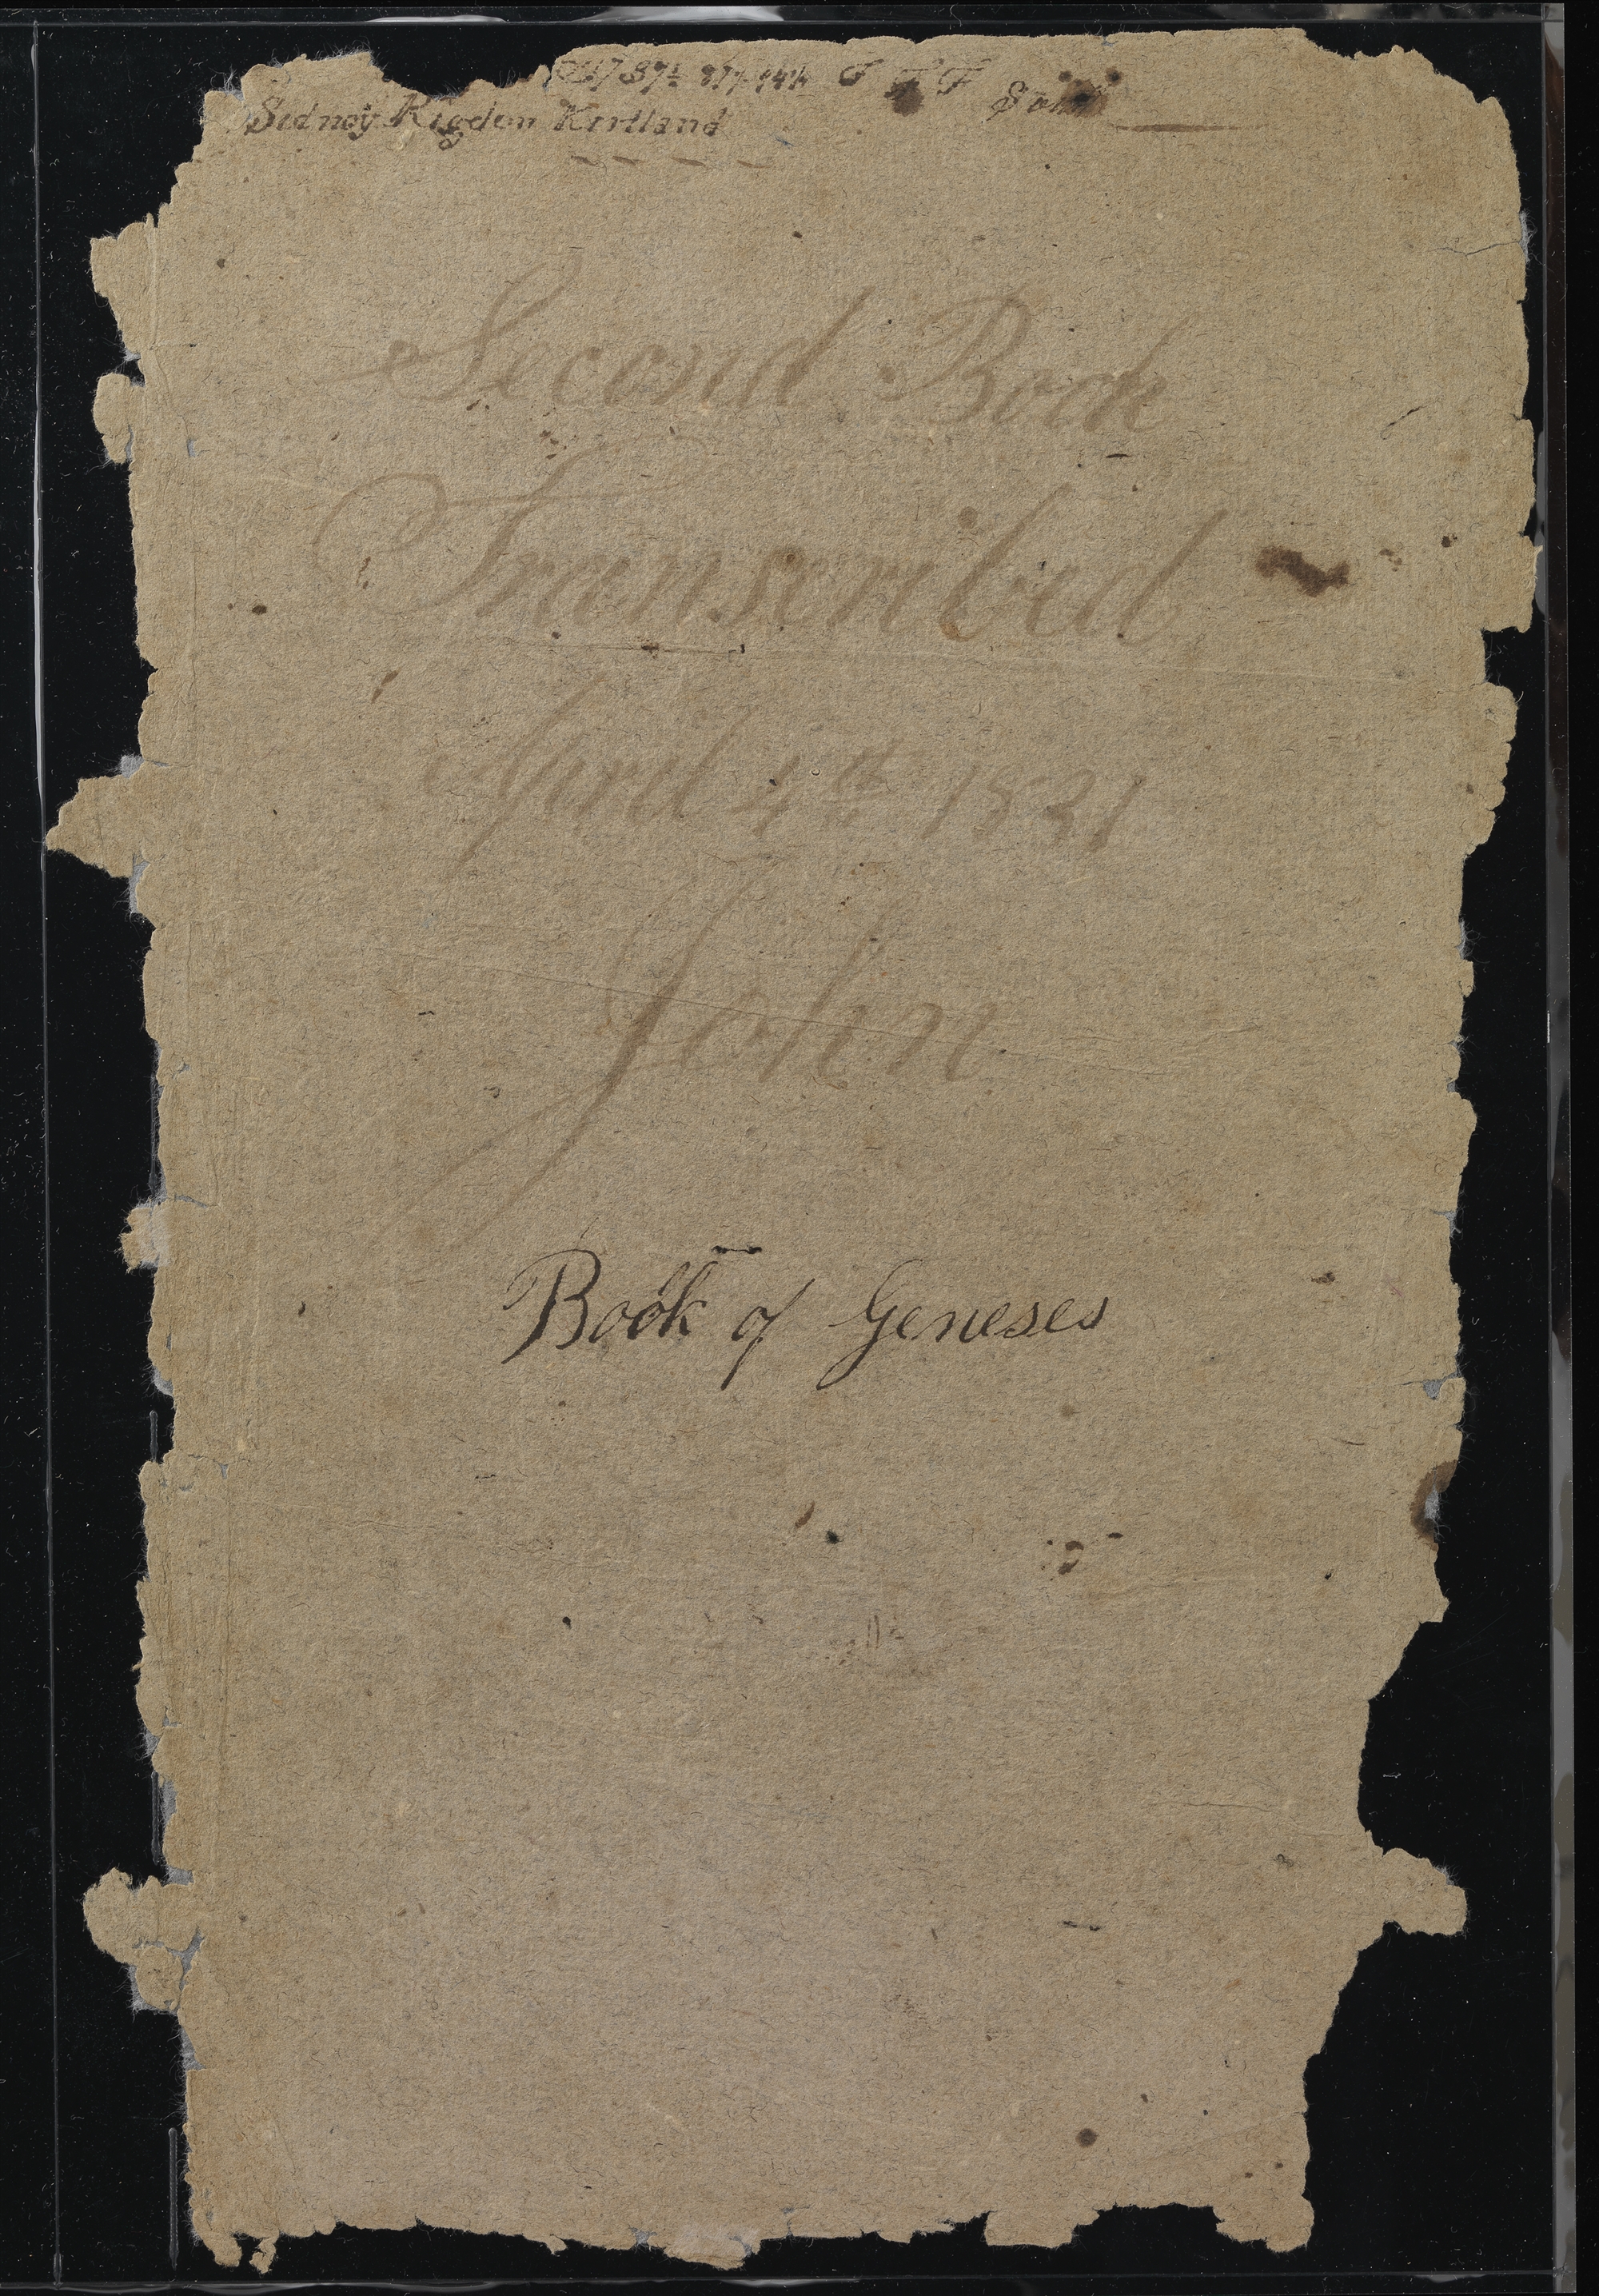 F F F
Sidney Rigdon Kirtland
Second Book
Transcribed
April 4th 1831
John
Book of Geneses